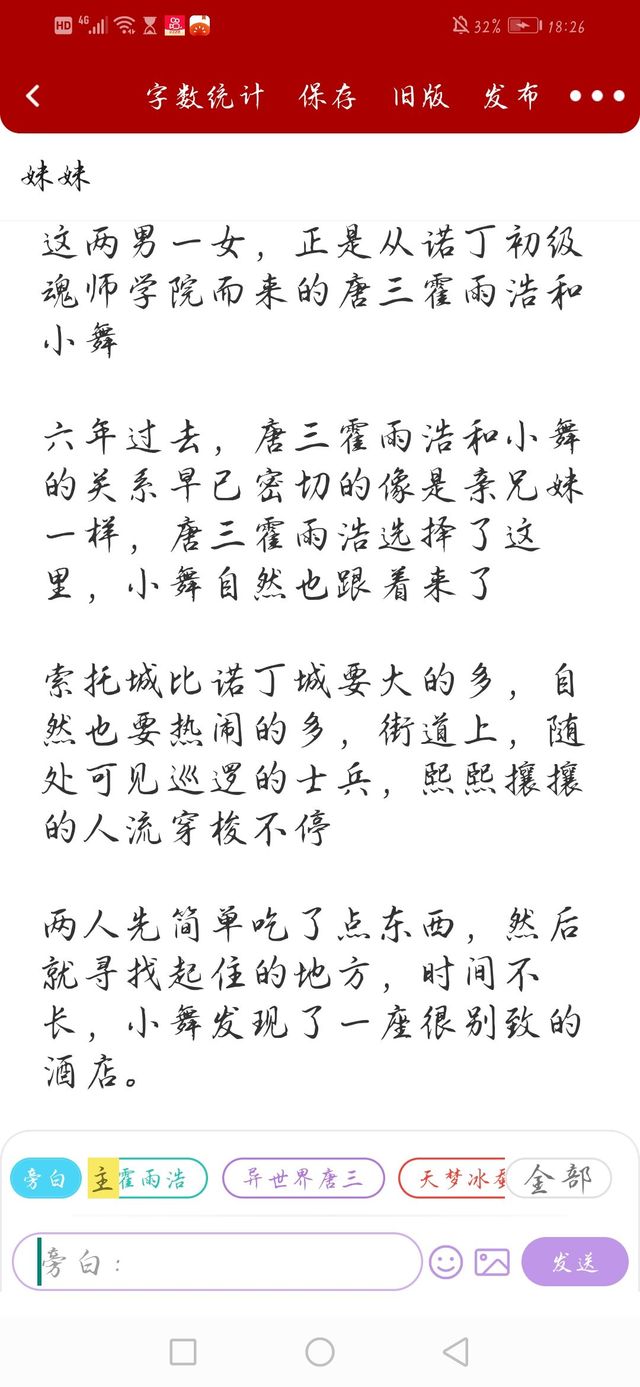 HD 4G 32% 18:26
字数统计 保存 旧版 发布
妹妹
这两男一女，正是从诺丁初级
魂师学院而来的唐三霍雨浩和
小舞
六年过去，唐三霍雨浩和小舞
的关系早已密切的像是亲兄妹
一样，唐三霍雨浩选择了这
里，小舞自然也跟着来了
索托城比诺丁城要大的多，自
然也要热闹的多，街道上，随
处可见巡逻的士兵，熙熙攘攘
的人流穿梭不停
两人先简单吃了点东西，然后
就寻找起住的地方，时间不
长，小舞发现了一座很别致的
酒店。
旁白 主 霍雨浩 异世界唐三 天梦冰 全部
旁白： 发送